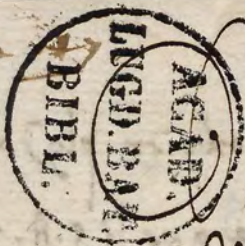 ACAD.
LUGD. BAT.
BIBL.